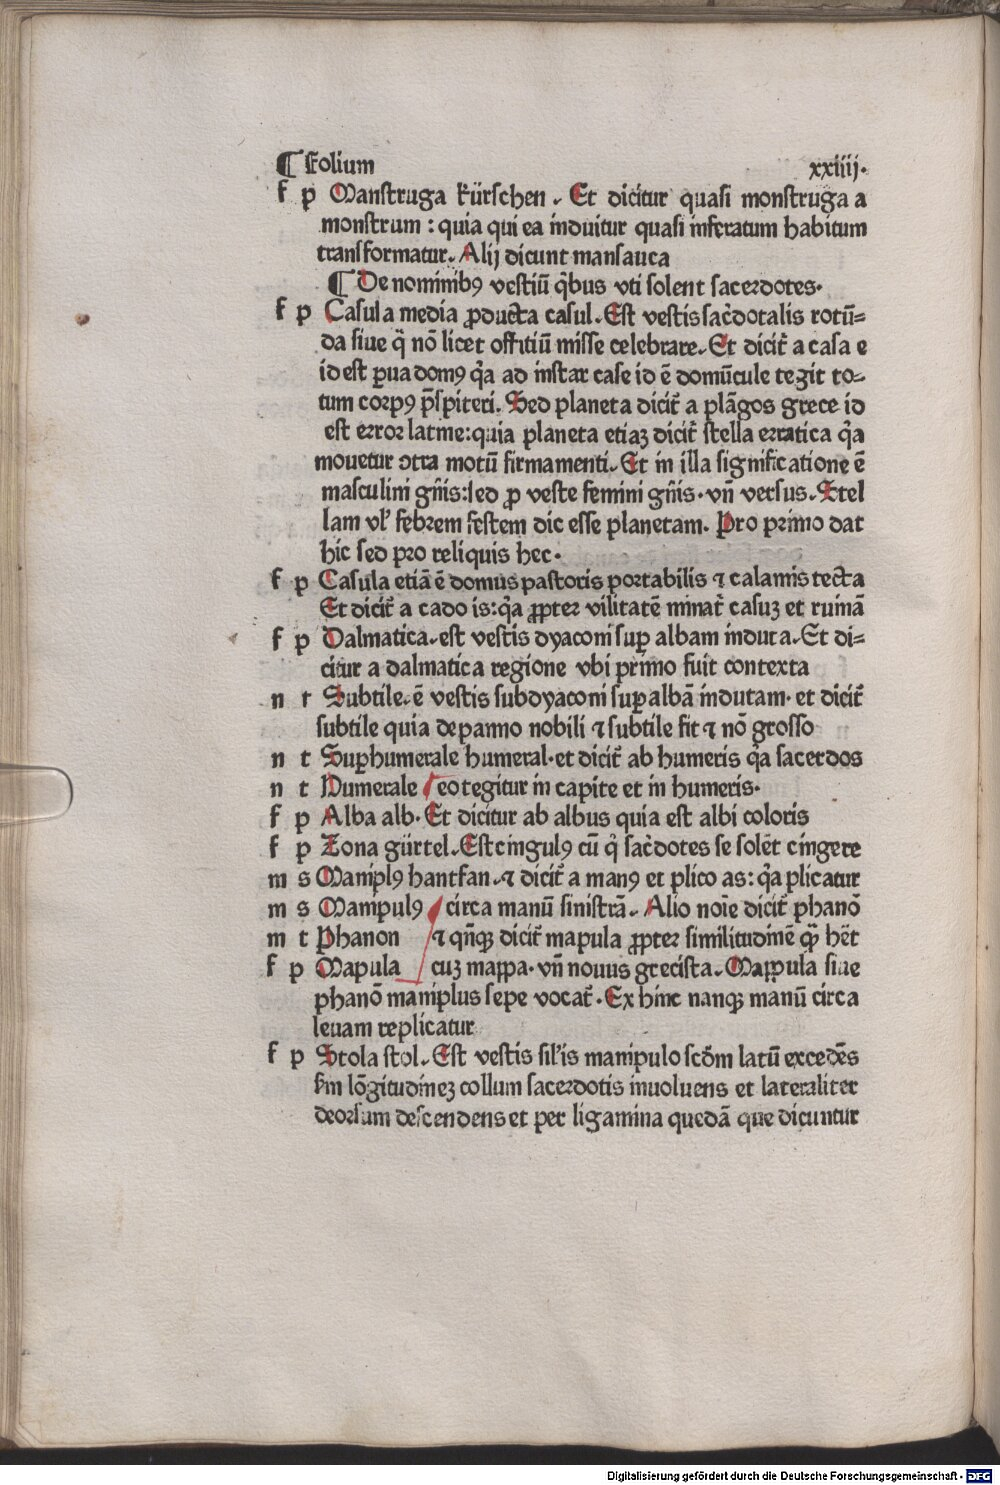 ¶ Folium xxiiij.
f p Manstruga kürschen. Et dicitur quasi monstruga a
monstrum : quia qui ea induitur quasi inferatum habitum
transformatur. Alij dicunt mansauca
¶ De nominibꝯ vestiū q̇bus vti solent sacerdotes.
f p Casula media ꝓducta casul. Est vestis sac̄dotalis rotū=
da siue q̄ nō licet offitiū misse celebrare. Et dicit̄ a casa e
id est ꝑua domꝯ q̇a ad instar case id ē domūcule tegit to-
tum corpꝯ p̄spiteri. Sed planeta dicit̄ a plāgos grece id
est error latine: quia planeta etiaꝫ dicit̄ stella erratica q̇a
mouetur ɔtra motū firmamenti. Et in illa significatione ē
masculini gn̄is: sed ꝓ veste femini gn̄is. vn̄ versus. Stel
lam vl' febrem festem dic esse planetam. Pro primo dat
hic sed pro reliquis hec.
f p Casula etiā ē domus pastoris portabilis ⁊ calamis tecta
Et dicit̄ a cado is: q̇a ꝓpter vilitatē minat̄ casuꝫ et ruinā
f p Dalmatica. est vestis dyaconi suꝑ albam induta. Et di=
citur a dalmatica regione vbi primo fuit contexta
n t Subtile. ē vestis subdyaconi suꝑ albā indutam. et dicit̄
subtile quia de panno nobili ⁊ subtile fit ⁊ nō grosso
n t Suꝑhumerale humeral. et dicit̄ ab humeris q̇a sacerdos
n t Humerale eo tegitur in capite et in humeris.
f p Alba alb. Et dicitur ab albus quia est albi coloris
f p Zona gürtel. Est cingulꝯ cū q̇ sac̄dotes se solēt cingere
m s Maniplꝯ hantfan. ⁊ dicit̄ a manꝯ et plico as: q̇a plicatur
m s Manipulꝯ circa manū sinistrā. Alio noīe dicit̄ phanō
m t Phanon ⁊ qn̄qꝫ dicit̄ mapula ꝓpter similitudinē quā hēt
f p Mapula cuꝫ mappa. vn̄ nouus grecista. Mappula siue
phanō maniplus sepe vocat̄. Ex hinc nanqꝫ manū circa
leuam replicatur
f p Stola stol. Est vestis sil'is manipulo scōm latū excedēs
sm lōgitudineꝫ collum sacerdotis inuoluens et lateraliter
deorsum descendens et per ligamina quedā que dicuntur
Digitalisierung gefördert durch die Deutsche Forschungsgemeinschaft - DFG